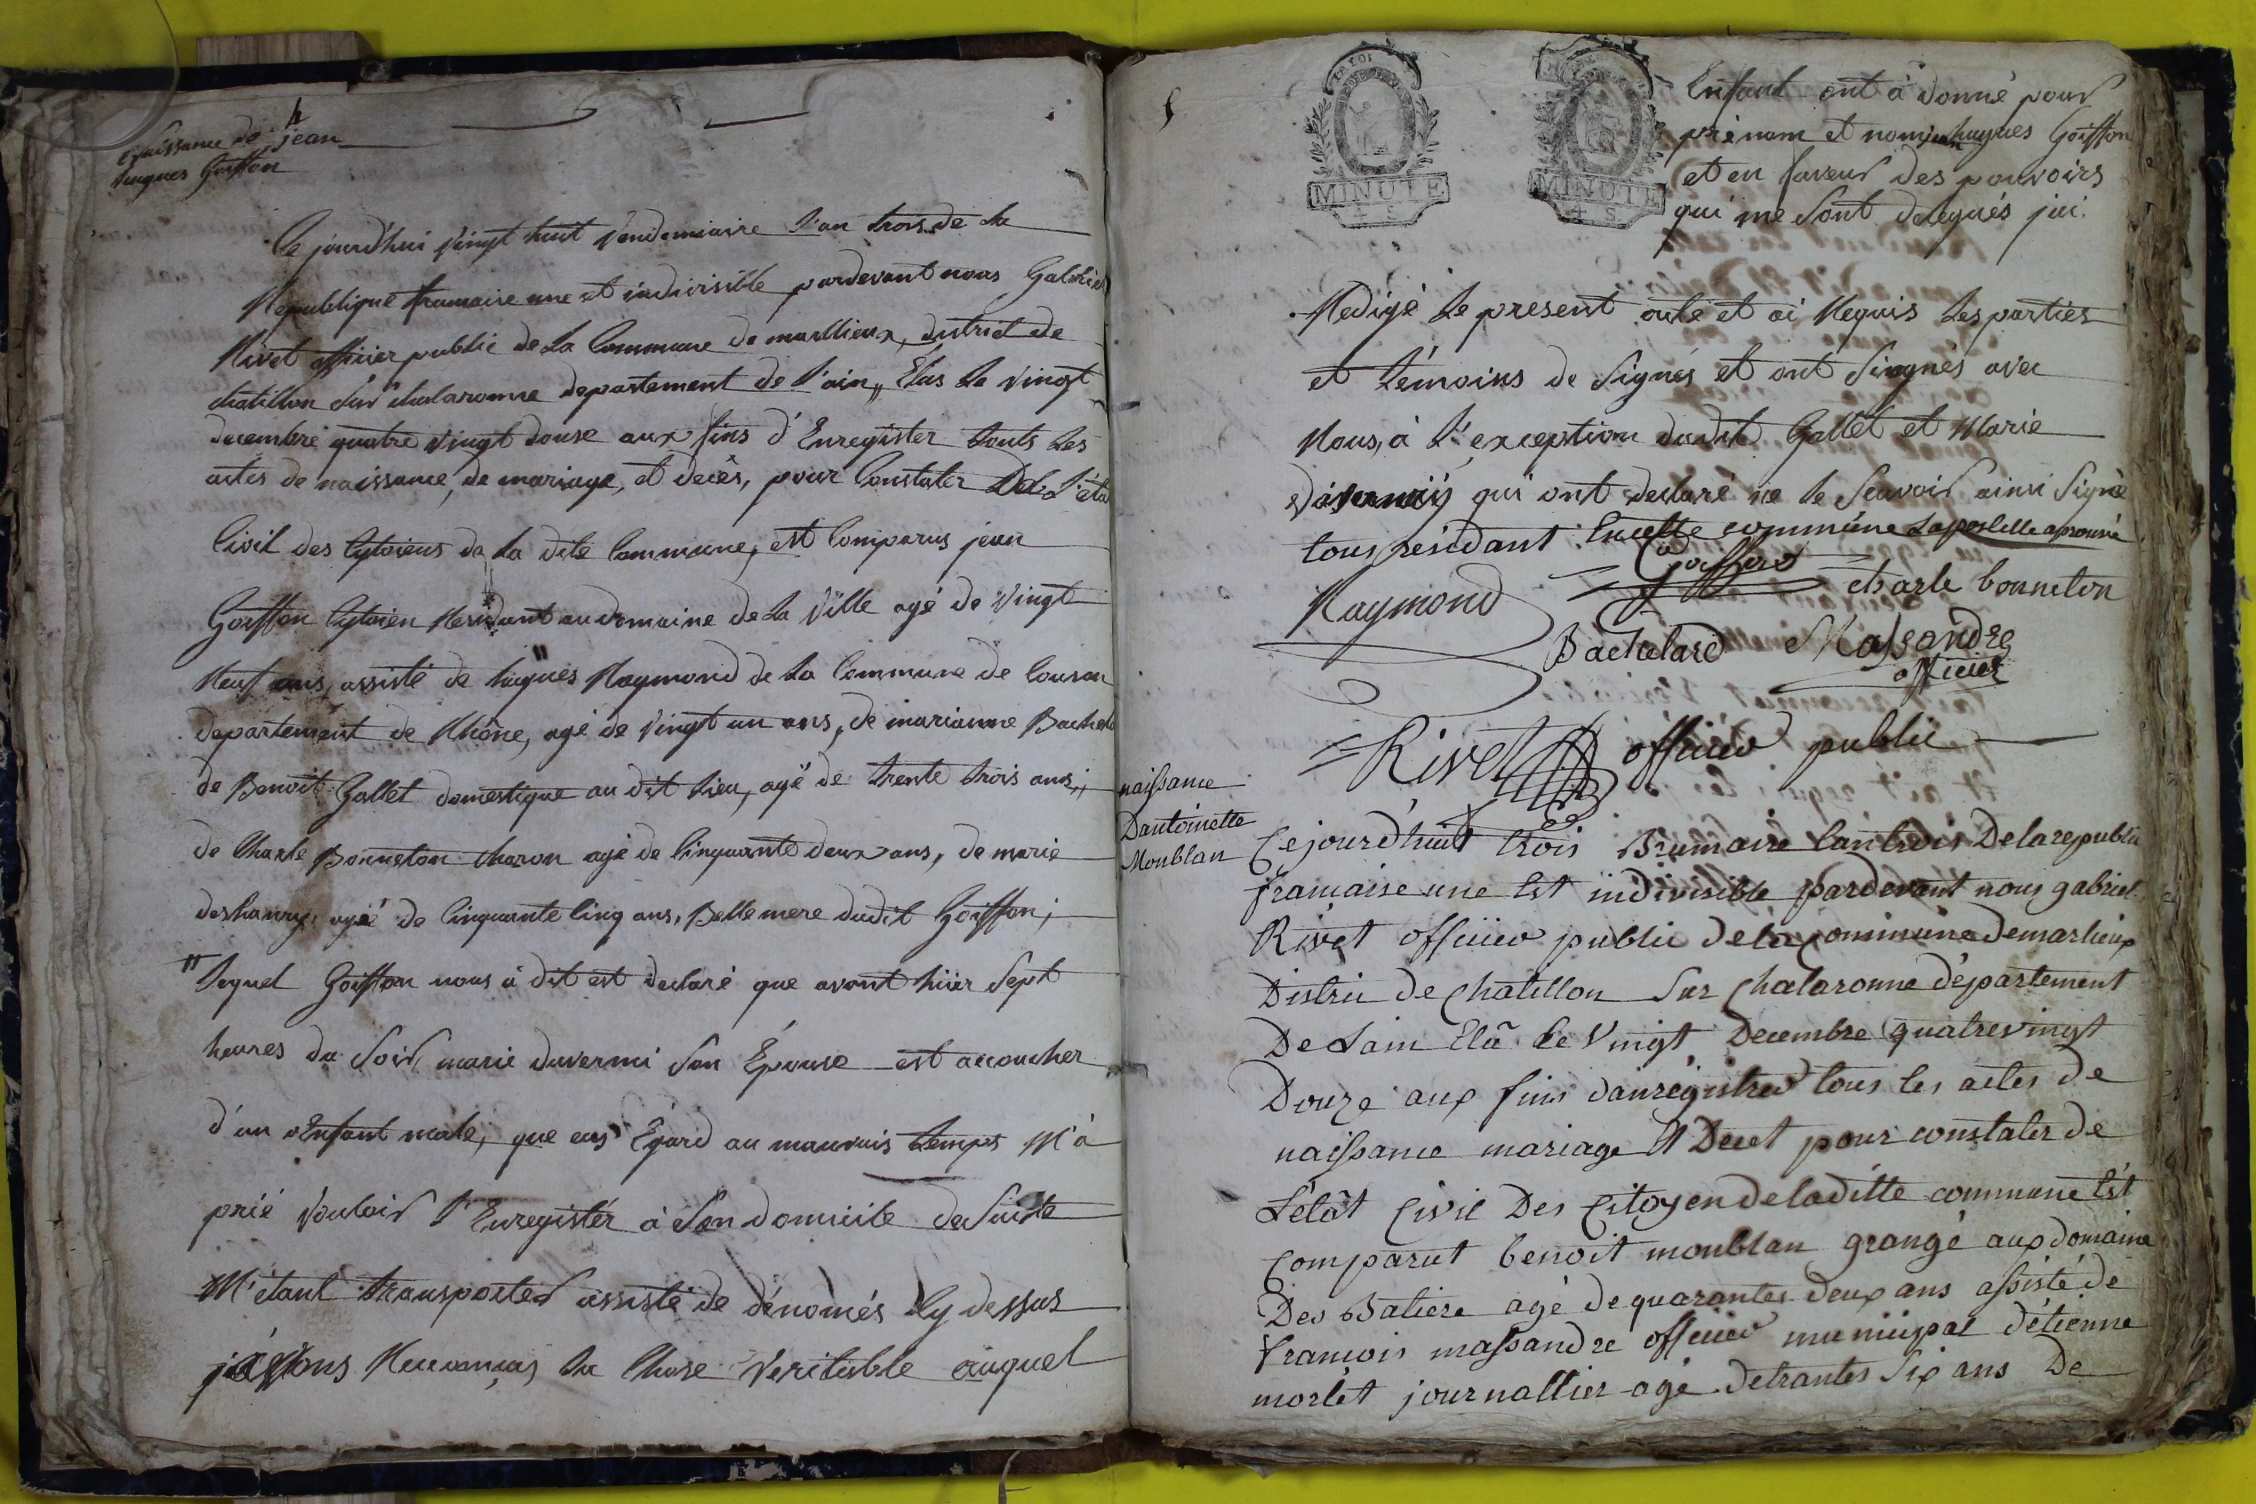 Naissance de jean
hugues Goiffon
Ce jourd'hui vingt huit Vendemiaire l'an trois de la
Republique francaise une et indivisible pardevant nous Gabriel
Rivet officier public de la Commune de marllieux, district de
chatillon sur chalaronne departement de l'ain, Elus le vingt
decembre quatre vingt douse aux fins d'Enregister touts les
actes de naissance, de mariage, et decès, pour Constater De L'éta
Civil des Cytoiens de la dite Commune, est Comparus jean
Goiffon Cytoien Residant au domaine de la Ville agé de vingt
Neuf ans, assisté de hugues Raymond de la Commune de
departement de Rhône, agé de vingt un ans, de marianne Bachela
de Benoit Gallet domestique au dit lieu, agé de trente trois ans,
de Charle Bonneton charon agé de Cinquante deux ans, de marie
agé de Cinquante Cinq ans, Bellemere dudit Goiffon;
lequel Goiffon nous à dit est declaré que avant hiir sept
heures du Soir, marie duvernai son Épouse est accoucher
d'un Enfant male, que eus Egard au mauvais temps M'à
prié vouloir l'Enregistér à son domicile de suite
M'étant transporter assisté de dénomés Cy dessus
la Chose veritable auquel
MINUTE
4 S.
MINUTE
4 S.
Enfant ont à donné pour
prénom et nom jean hugues Goiffon
et en faveur des pouvoirs
qui me sont delegués jai
Redigé le present acte et ai Requis les parties
et témoins de signés et ont singnés avec
Nous, à l'exception dudit Gallet et Marie
qui ont declaré ne le scavoir ainsi signé
tous residant Encette commune Lapostille aprouvé
Goiffon
Raymond
charle bonneton
Bachelard
Massandre
officier
Rivet officier public
naissance
Dantoinette
Monblan
Cejourd'huit trois Brumaire lantrois Delarepublic
française une Est indivisible pardevant nous gabriel
Rivet officier public delacommune demarlieux
Distric de Chatillon sur Chalaronne département
De Lain Elû le vingt Decembre quatrevingt
Douze aux fins danrégistrer tous les actes de
naissance mariage et Decet pour constater de
L'étât Civil Des Citoyen deladitte commune Est
Comparut benoit monblan grangé aux domaine
Des Batiere agé de quarantes deux ans assisté de
francois massandre officier municipal détienne
morlét journallier agé detrantes six ans De